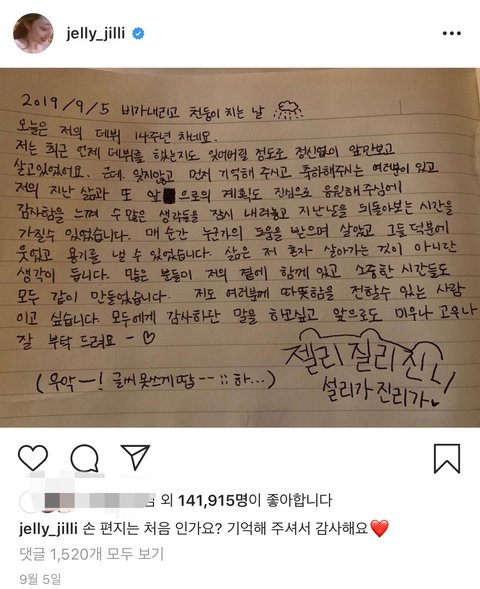 jelly_jilli
2019/9/5 비가내리고 천둥이 치는 날
오늘은 저의 데뷔 14주년 차네요.
저는 최근 언제 데뷔를 했는지도 잊어버릴 정도로 정신없이 앞만보고
살고있었어요. 근데, 잊지않고 먼저 기억해 주시고 축하해주시는 여러분이 있고
저의 지난 삶과 또 앞으로의 계획도 진심으로 응원해주심에
감사함을 느끼며 수많은 생각들을 잠시 내려놓고 지난날을 뒤돌아보는 시간을
가질수 있었습니다. 매 순간 누군가의 도움을 받으며 살았고 그들 덕분에
웃었고 용기를 낼 수 있었습니다. 삶은 저 혼자 살아가는 것이 아니란
생각이 듭니다. 많은 분들이 저의 곁에 함께 있고 소중한 시간들도
모두 같이 만들었습니다. 저도 여러분께 따뜻함을 전할수 있는 사람
이고 싶습니다. 모두에게 감사하단 말을 하고싶고 앞으로도 미우나 고우나
잘 부탁 드려요 ~ ♡
젤리 질리 진리
설리가 진리가♥
(우악ㅡ! 글씨 못쓰게땁 --;; 하...)
외 141,915명이 좋아합니다
jelly_jilli 손 편지는 처음 인가요? 기억해 주셔서 감사해요❤️
댓글 1,520개 모두 보기
9월 5일